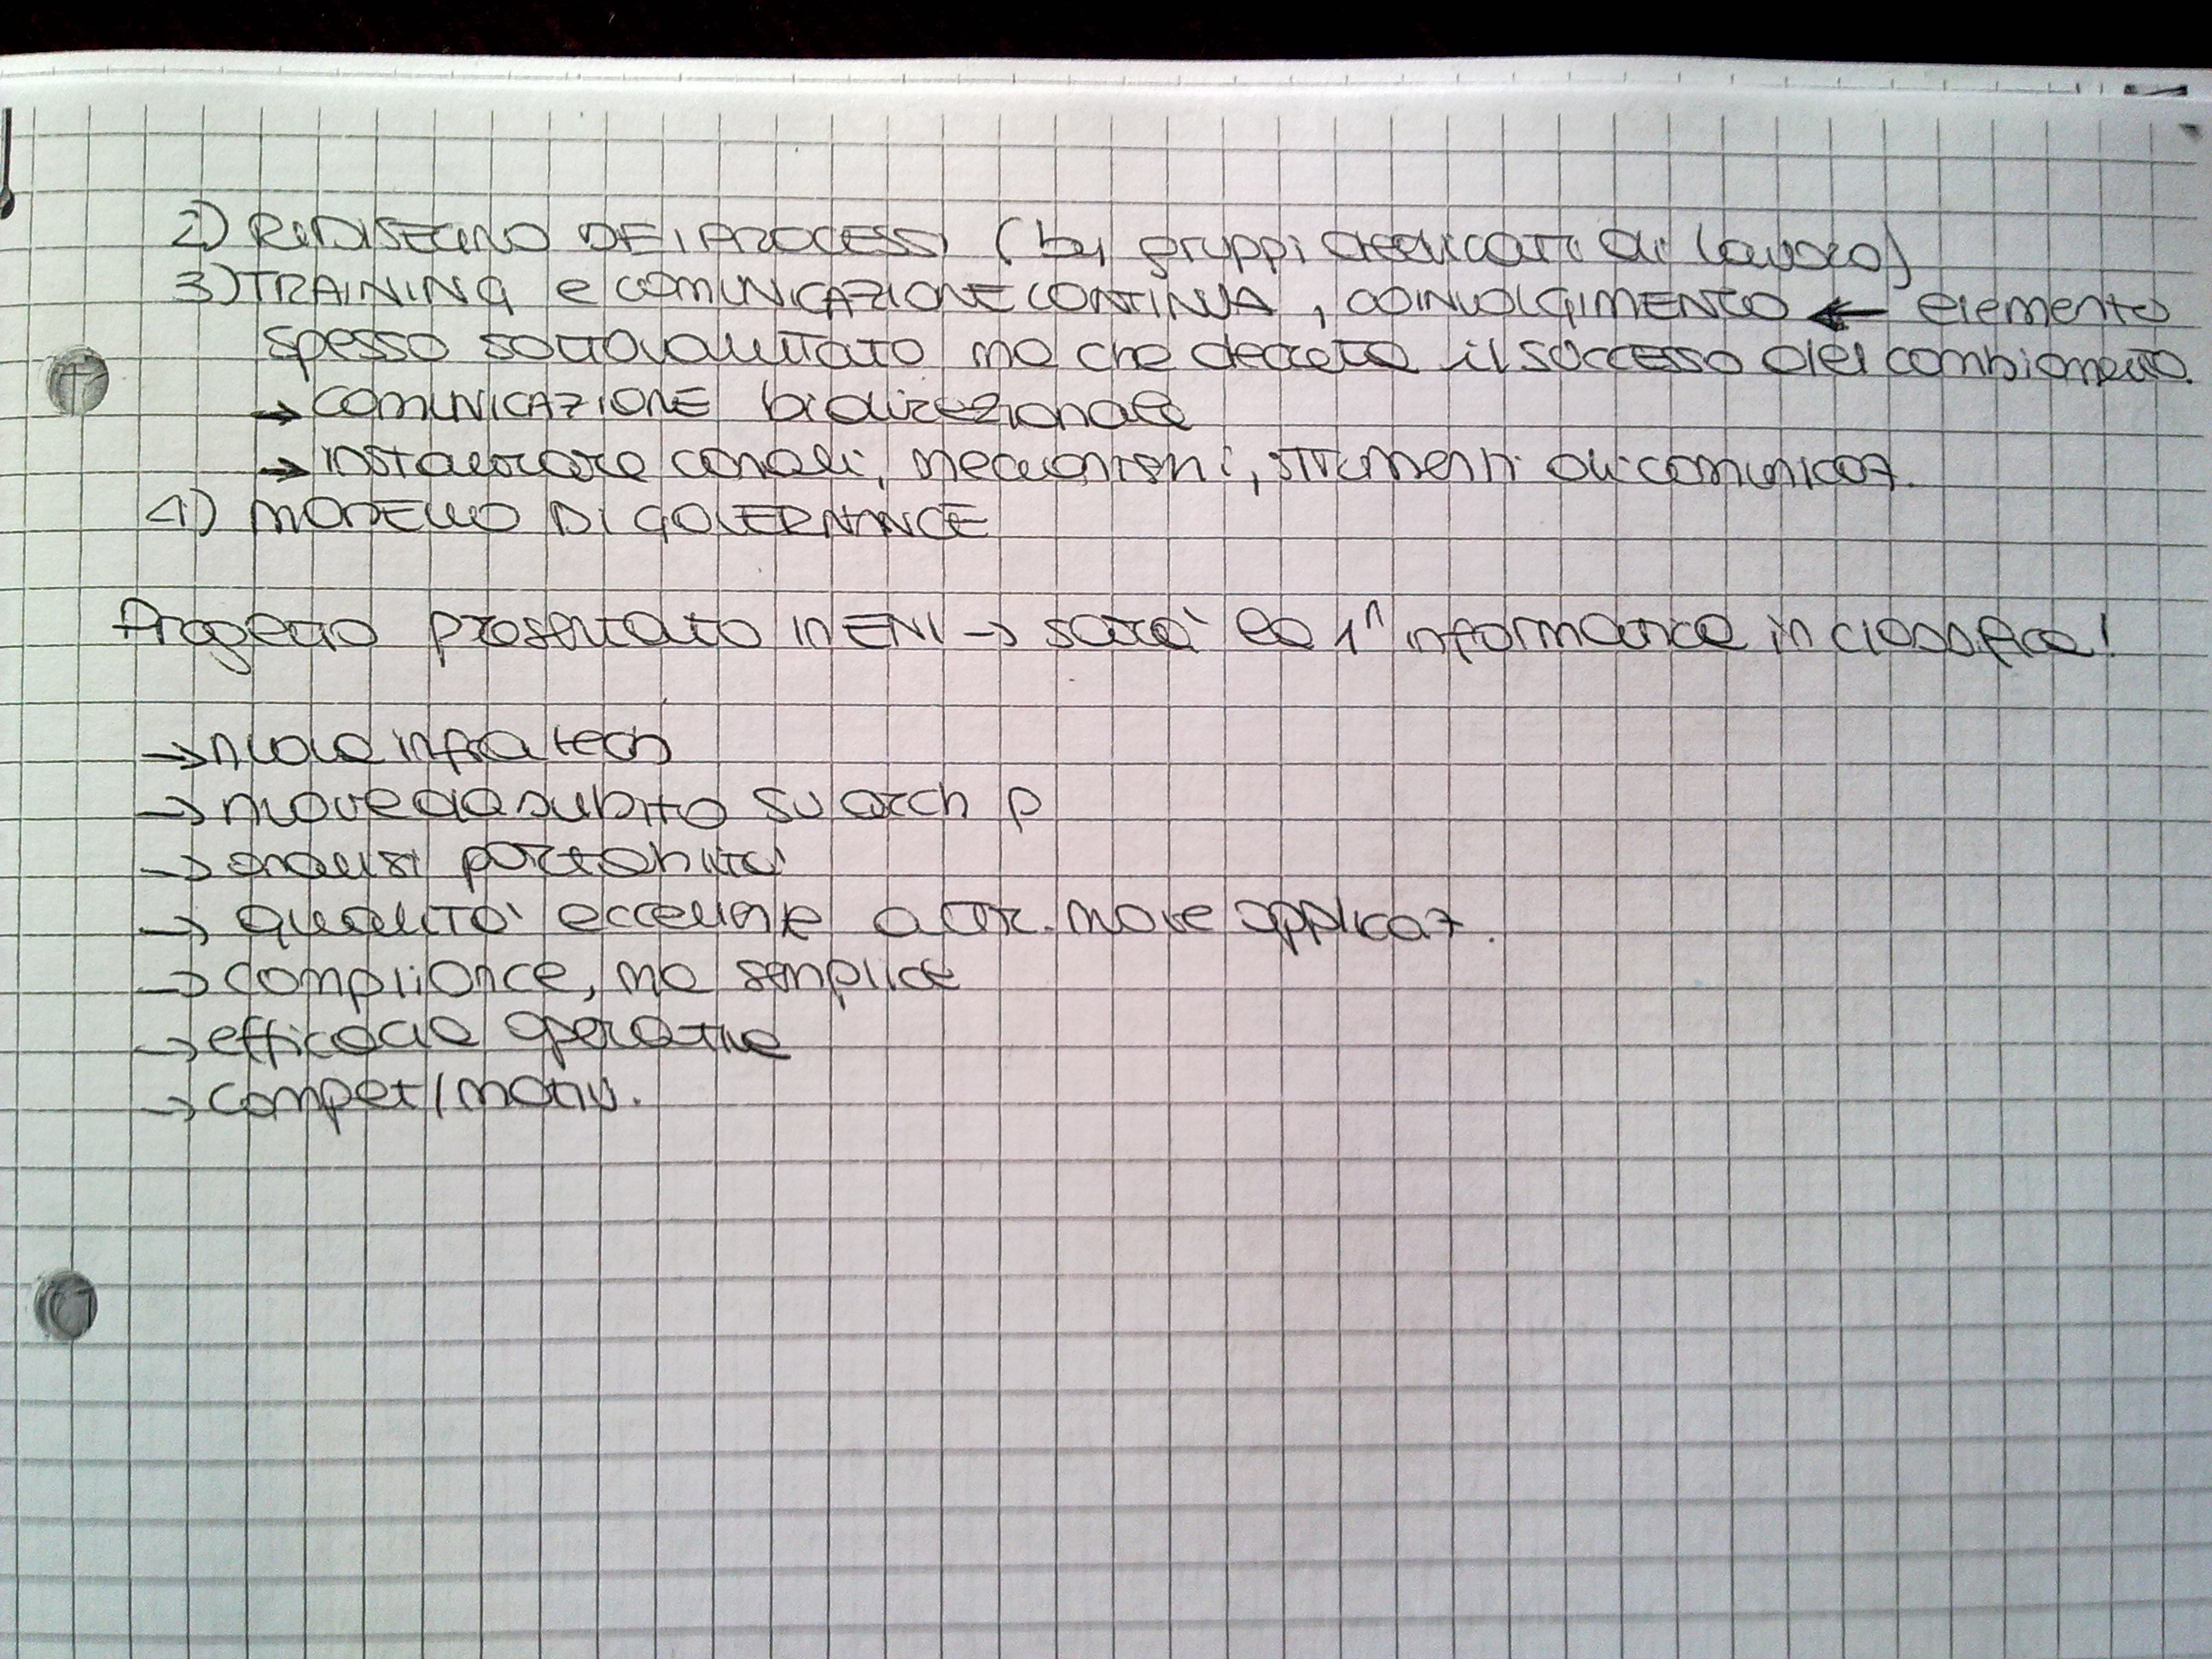 2) RIDISEGNO DEI PROCESSI (by gruppi dedicati di lavoro)
3) TRAINING e COMUNICAZIONE CONTINUA, COINVOLGIMENTO ← elemento
spesso sottovalutato ma che decreta il successo del cambiamento.
→ COMUNICAZIONE bidirezionale
→ instaurare canali, meccanismi, strumenti di comunicaz.
4) MODELLO DI GOVERNANCE
Progetto presentato in ENI → sarà la 1^ informance in classifica!
→ nuova infra tech
→ nuove da subito su arch p
→ analisi portabilità
→ qualità eccellente attr. nove applicaz.
→ compliance, ma semplice
→ efficacia operativa
→ compet/motiv.